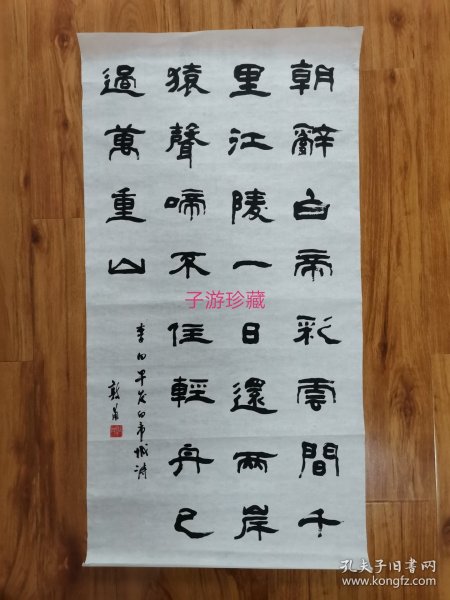 朝辭白帝彩雲間千
里江陵一日還兩岸
猿聲啼不住輕舟已
過萬重山
李白早发白帝城诗
子游珍藏
孔夫子旧书网
www.kongfz.com